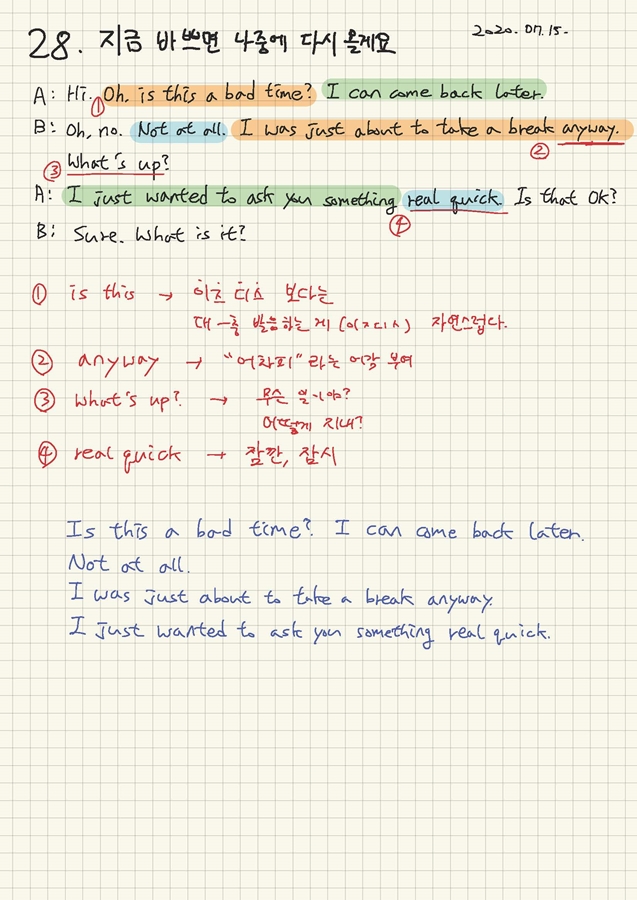 28. 지금 바쁘면 나중에 다시 올게요
2020. 07. 15.
A: Hi. Oh, is this a bad time? I can come back later.
①
B: Oh, no. Not at all. I was just about to take a break anyway.
②
③ What's up?
A: I just wanted to ask you something real quick. Is that OK?
④
B: Sure. What is it?
① is this → 이즈 디스 보다는
대충 발음하는 게 (이지디시) 자연스럽다.
② anyway → "어차피"라는 어감 부여
③ what's up? → 무슨 일이야?
어떻게 지내?
④ real quick → 잠깐, 잠시
Is this a bad time? I can come back later.
Not at all.
I was just about to take a break anyway.
I just wanted to ask you something real quick.